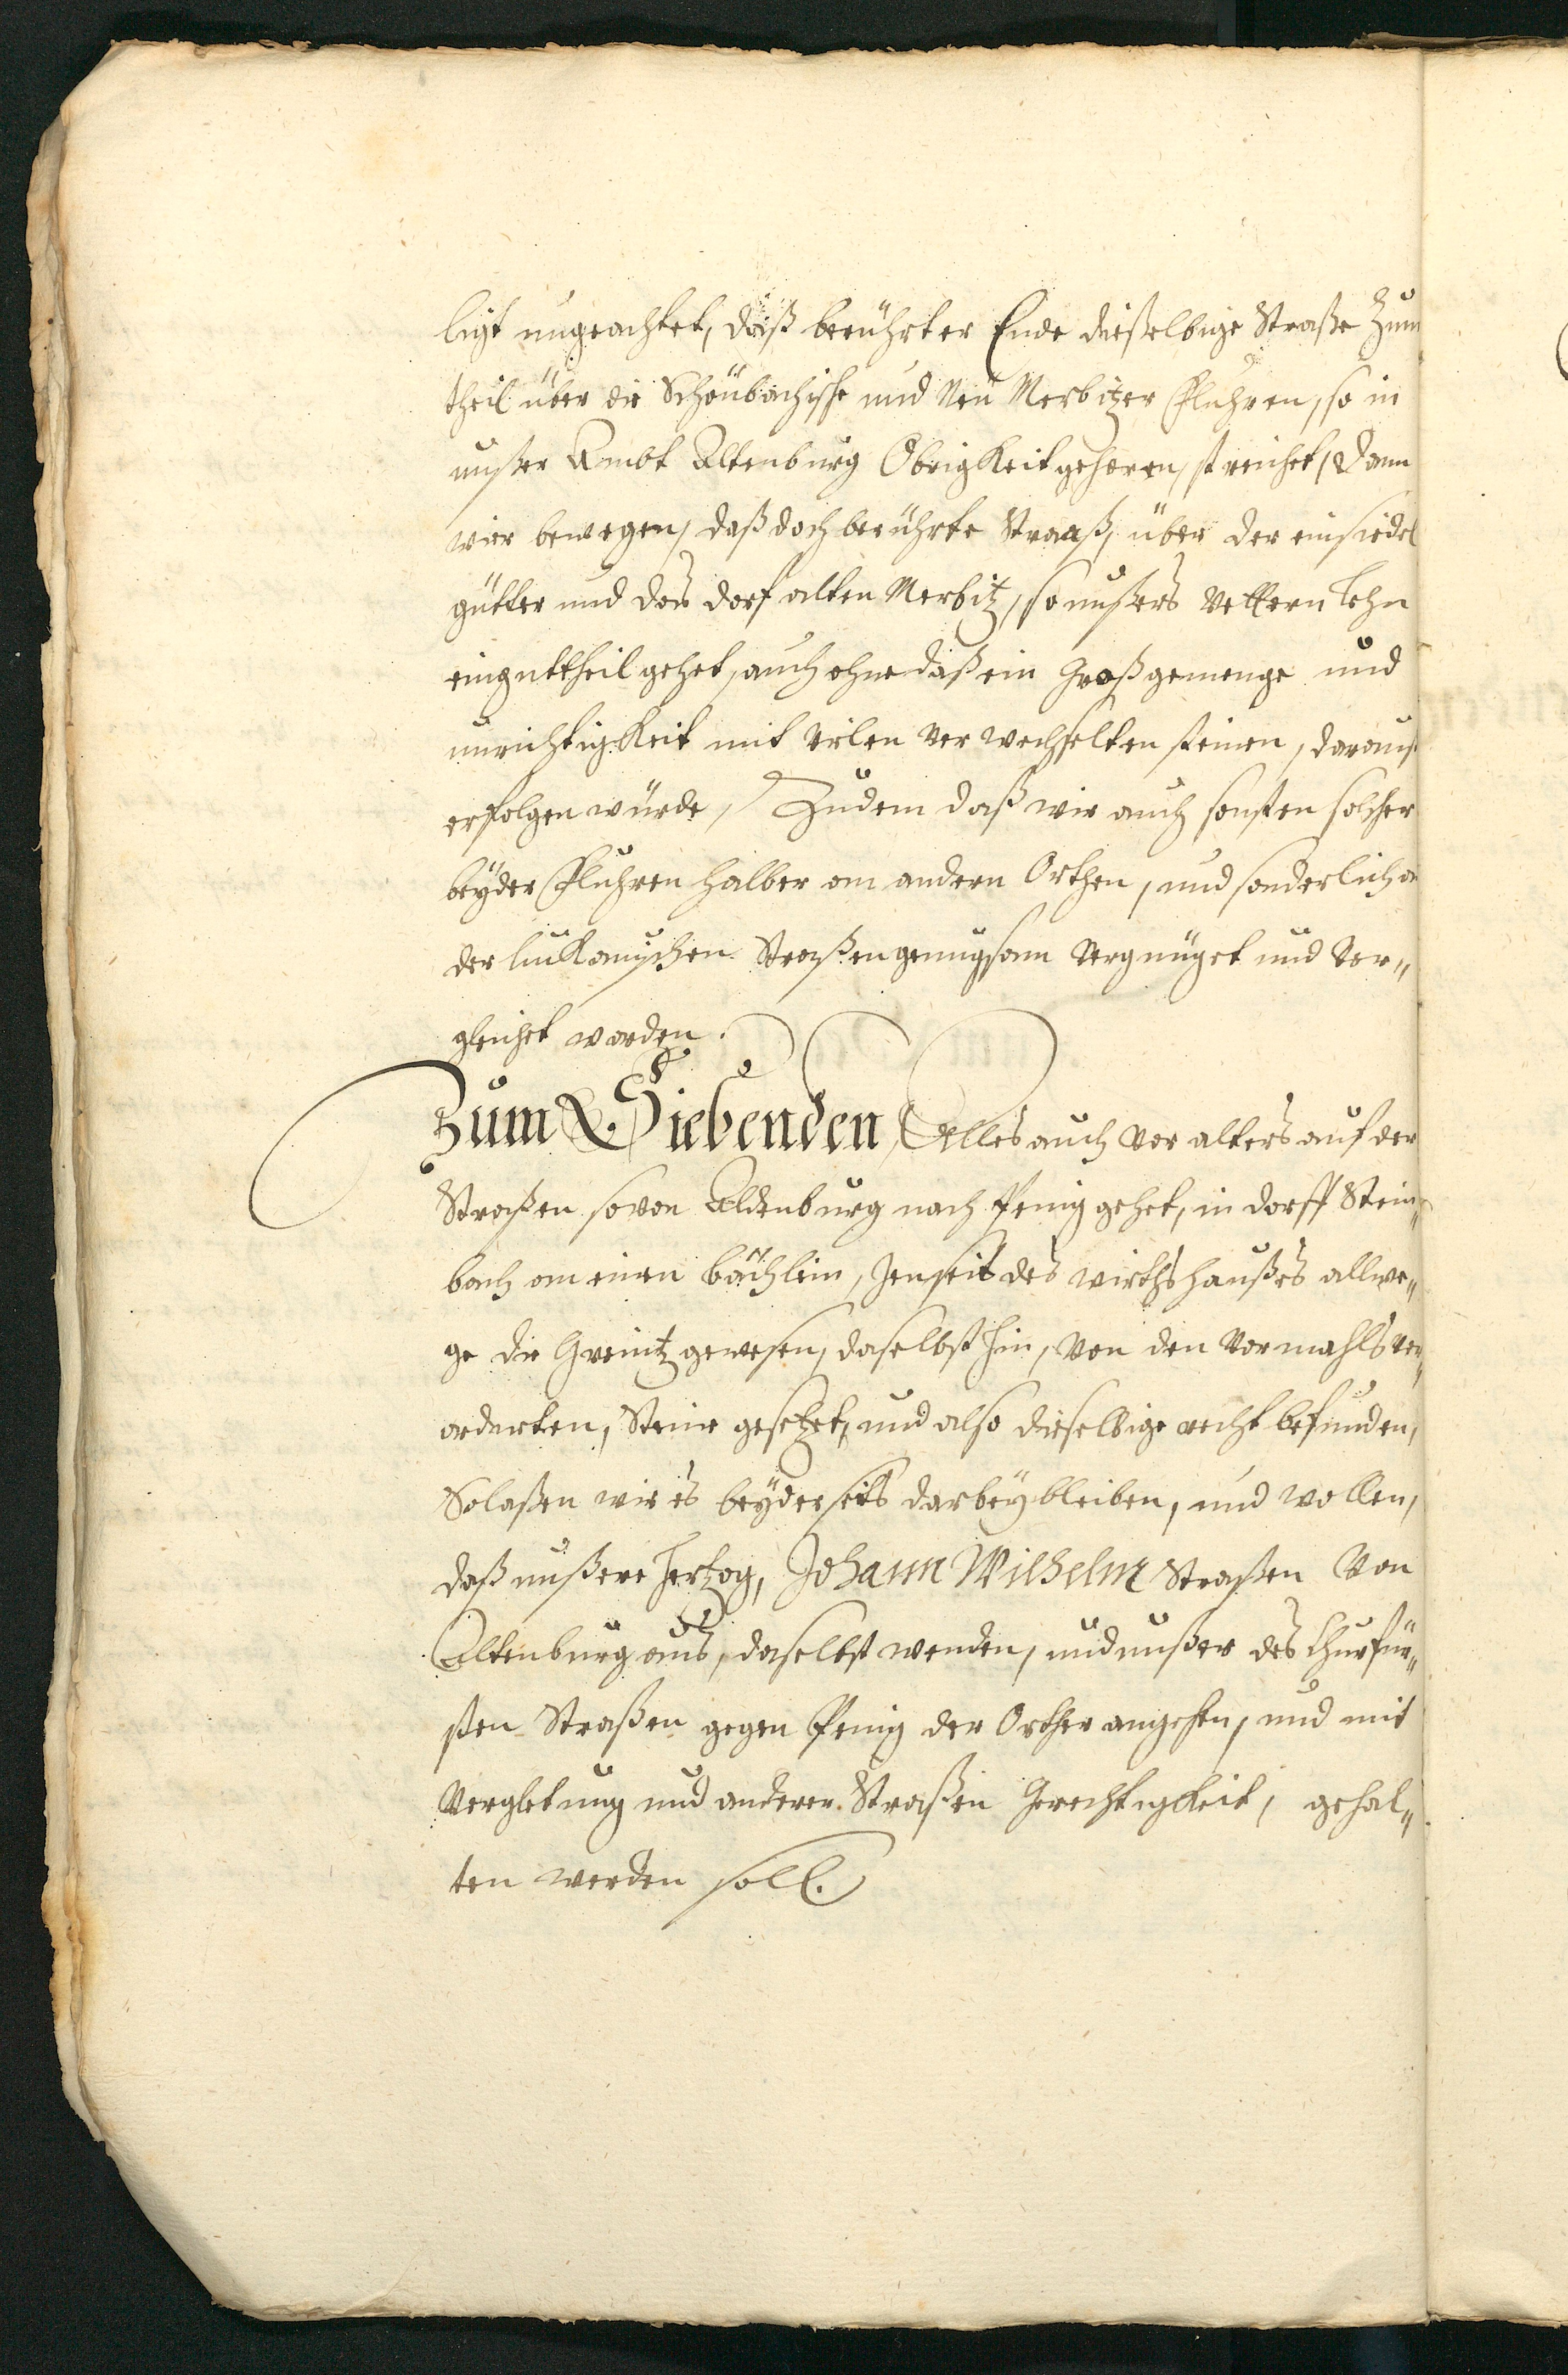 ligt ungeachtet, daß berührter Ende dießelbige Straße Zum
theil über die Schönbachische und Neu Merbitzer Fluhren, so in
unßer Ambt Altenburg Obrigkeit gehören, streichet, Dann
wier bewegen, daß doch berührte Straaß, über der einsiedel
gütter und das dorf alten Merbitz, so unßers Vettern Lehn
ein gutt theil gehet, auch ohne daß ein Groß gemenge und
unrichtigkeit mit vielen verwechselten steinen, daraus
erfolgen würde, Zudem daß wir auch sonsten solcher
beyder Fluhren halber am andern Orthen, und sonderlich an
der luckauischen Straßen genugsam Vergnüget und Ver„
gleichet worden.
Zum Siebenden, Alles auch vor alters auf der
Straßen so von Aldenburg nach Penig gehet, in dorff Stein„
bach am einen bächlein, Jenseit des wirthshaußes allwe„
ge die Greintz gewesen, daselbst hin, Von den Vormahls ver„
orderten, Steine gesetzet, und also dieselbige recht befunden,
So laßen wir es beyderseits darbey bleiben, und wollen,
daß unßere Hertzog, Johann Wilhelm Straßen Von
Altenburg aus, daselbst wenden, und unßer des Churfür„
sten Straßen gegen Penig der Orther angehen, und mit
Vergletung und anderer Straßen Gerechtigkeit, gehal„
ten werden soll.